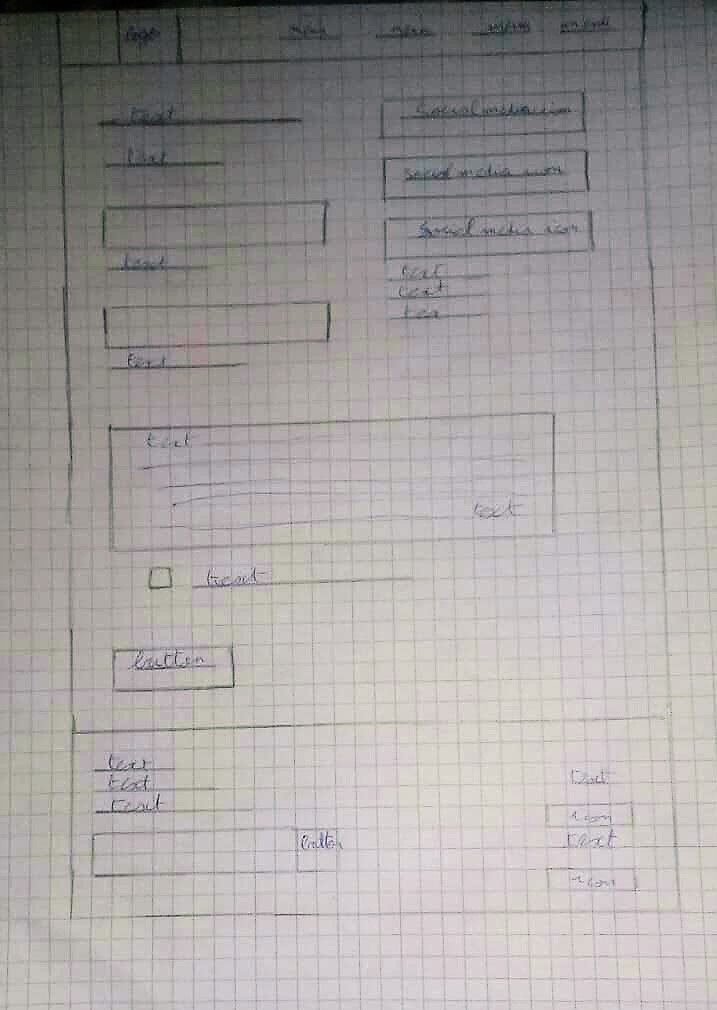 logo menu menu menu menu
text
text
text
text
Social media icon
Social media icon
Social media icon
text
text
tex
text
text
text
button
text
text
text
button
text
icon
text
icon